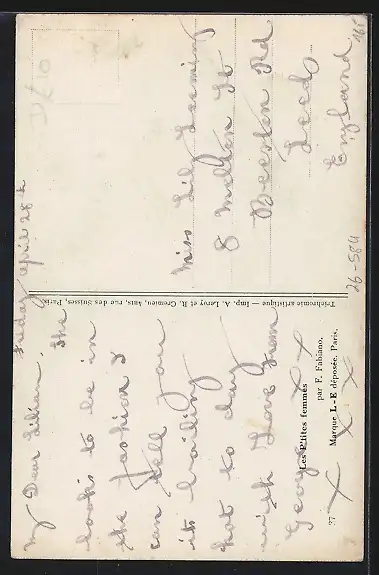 Friday april 28th
My Dear Lilian. The
looks to be in
the fashion &
can tell you
its boiling
hot to day
with love from
George X X
X X X
27
Les P'tites femmes
par F. Fabiano.
Marque L-E déposée. Paris.
Trichromie artistique — Imp. A. Leroy et R. Cremieu, Suts, rue des Suisses, Paris.
Miss Lily
8 Milton St
Beeston Rd
Leeds
England
26-584